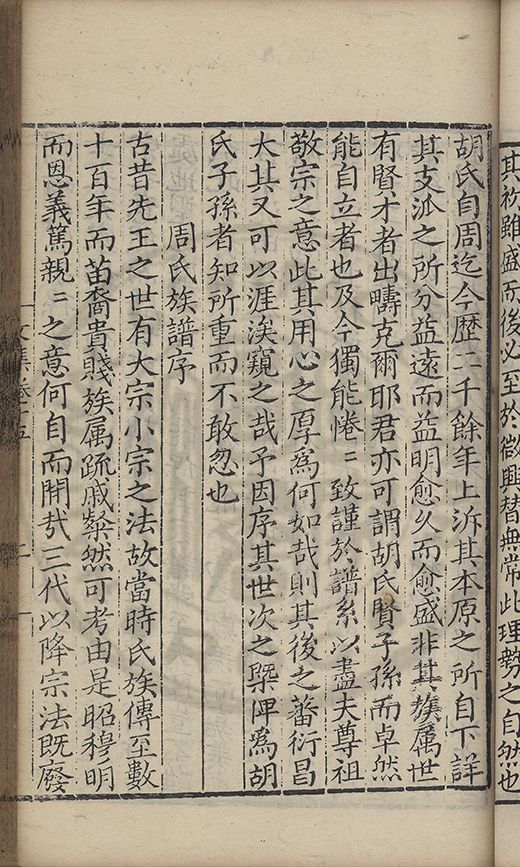 其衩雖盛而後必至於微興替無常此理勢之自然也
胡氏自周迄今歴二千餘年上泝其本原之所自下詳
其支派之所分益遠而益明愈久而愈盛非其族属世
有賢才者出疇克爾耶君亦可謂胡氏賢子孫而卓然
能自立者也及今獨能惓〻致謹於譜系以盡夫尊祖
敬宗之意此其用心之厚為何如哉則其後之蕃衍昌
大其又可以涯涘窺之哉予因序其世次之槩俾為胡
氏子孫者知所重而不敢忽也
周氏族譜序
古昔先王之世有大宗小宗之法故當時氏族傳至數
十百年而苗裔貴賤族属疏戚粲然可考由是昭穆明
而恩義篤親〻之意何自而開㦲三代以降宗法既廢
文集卷十五 二